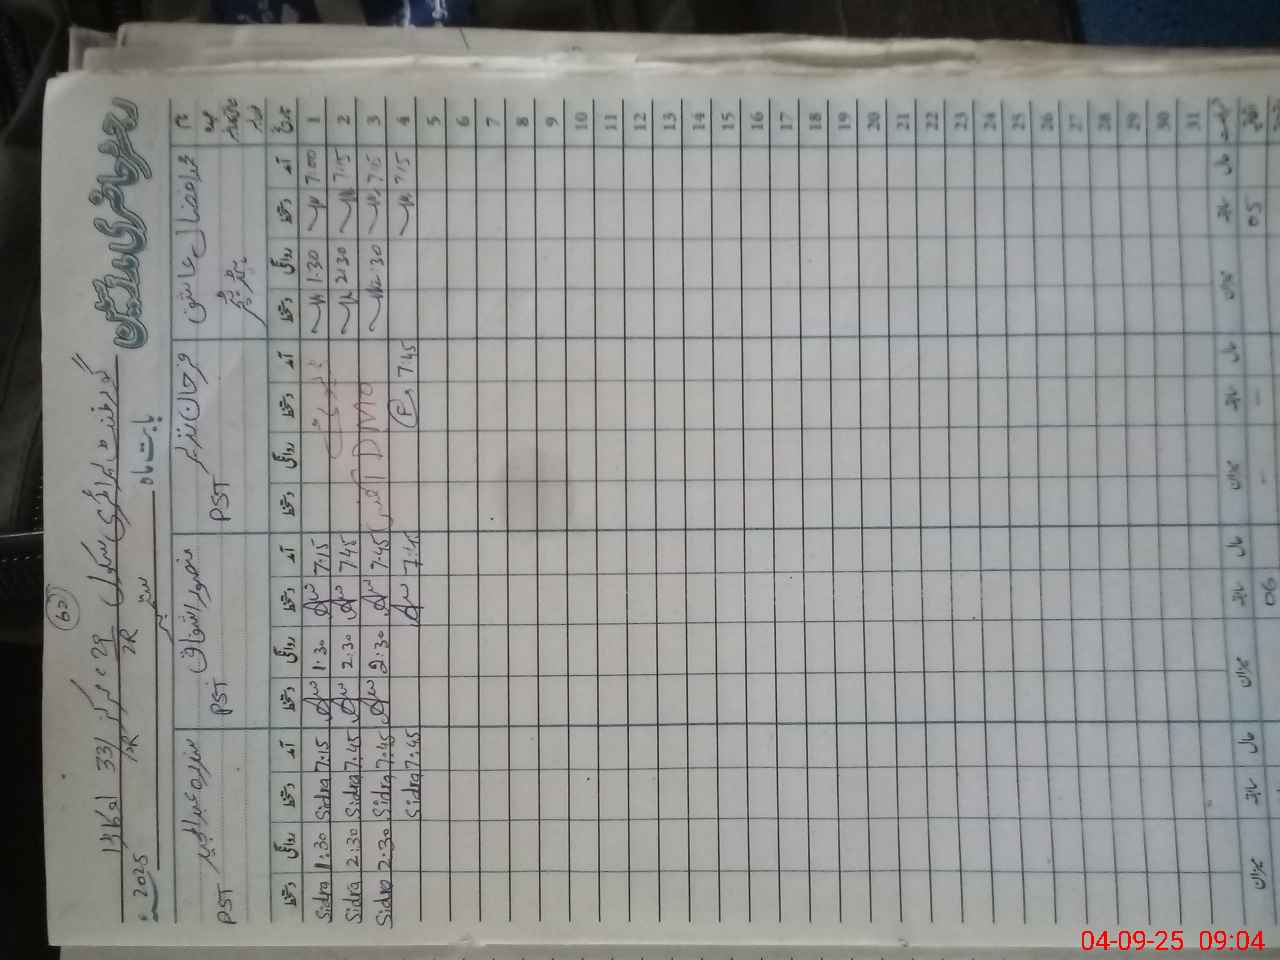 62
گورنمنٹ پرائمری سکول 29/2R مرکز 33/2R اوکاڑہ
رجسٹر حاضری مدرسین
بابت ماہ ستمبر 2025ء
نام محمد افضال عاشق فرحان نذیر سدرہ عبدالمجید
عہدہ ہیڈ ٹیچر PST PST PST
تاریخ آمد دستخط روانگی دستخط آمد دستخط روانگی دستخط آمد دستخط روانگی دستخط آمد دستخط روانگی دستخط
1 7:00 1:30 7:15 1:30 7:15 Sidra 1:30 Sidra
2 7:15 2:30 7:45 2:30 7:45 Sidra 2:30 Sidra
3 7:15 2:30 DMO 7:45 2:30 7:45 Sidra 2:30 Sidra
4 7:15 7:45 7:45 7:45 Sidra
5
6
7
8
9
10
11
12
13
14
15
16
17
18
19
20
21
22
23
24
25
26
27
28
29
30
31
حال سابقہ میزان حال سابقہ میزان حال سابقہ میزان حال سابقہ میزان
اتفاقیہ 05 - - 06
04-09-25 09:04